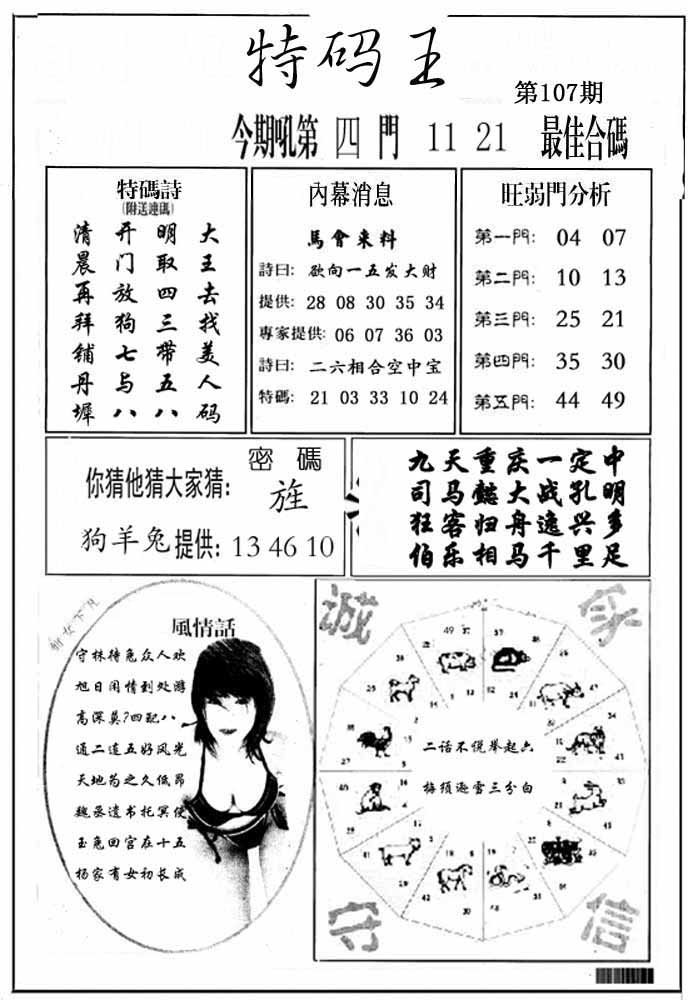 特码王
第107期
今期吼第 四 門 11 21 最佳合碼
特碼詩
(附送連碼)
大王去找美人码
明取四三带五八
开门放狗七与八
清晨再拜铺丹墀
內幕消息
馬會来料
詩曰: 欲向一五发大财
提供: 28 08 30 35 34
專家提供: 06 07 36 03
詩曰: 二六相合空中宝
特碼: 21 03 33 10 24
旺弱門分析
第一門: 04 07
第二門: 10 13
第三門: 25 21
第四門: 35 30
第五門: 44 49
密碼
你猜他猜大家猜: 旌
狗羊兔提供: 13 46 10
九天重庆一定中
司马懿大战孔明
狂客归舟逸兴多
伯乐相马千里足
風情話
守株待兔众人欢
旭日闲情到处游
高深莫?四配八
通二连五好风光
天地为之久低昂
魏丞遗书托冥使
玉兔回宫在十五
杨家有女初长成
诚
守
信
二话不说举起六
梅须逊雪三分白